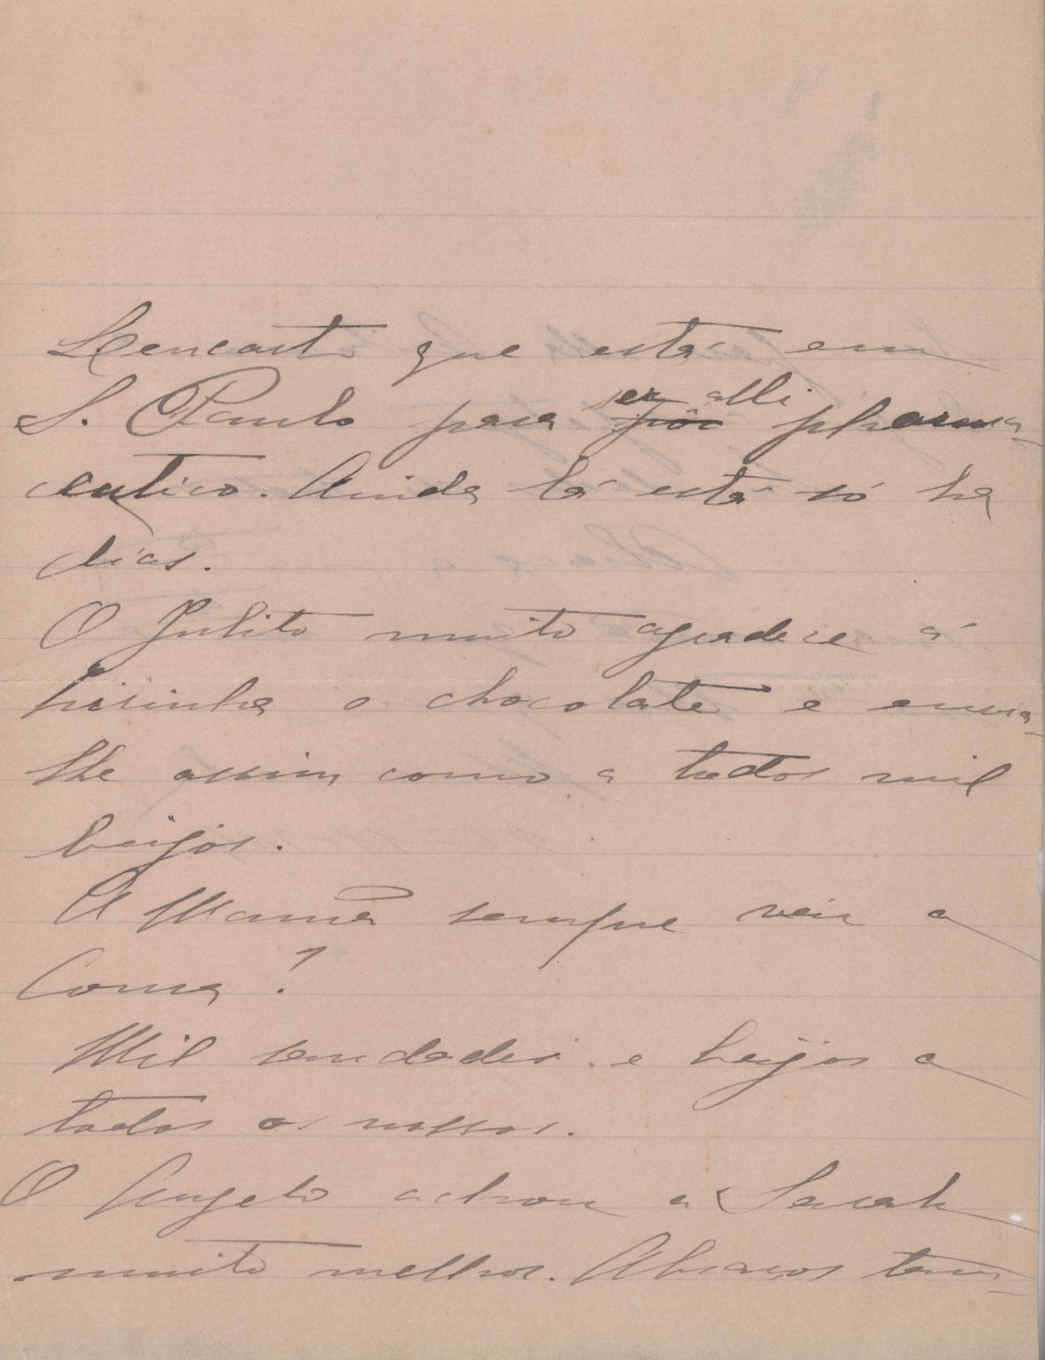 Lencart que está em
S. Paulo para ser alli pharma-
ceutico. Ainda lá está só ha
dias.
O Julito muito agradece á
Lisinha o chocolate e envia-
lhe assim como a todos mil
beijos.
A Mamã sempre veiu a
Coma?
Mil saudades e beijos a
todos os nossos.
O Angelo achou a Sarah
muito melhor. Abraços ter-